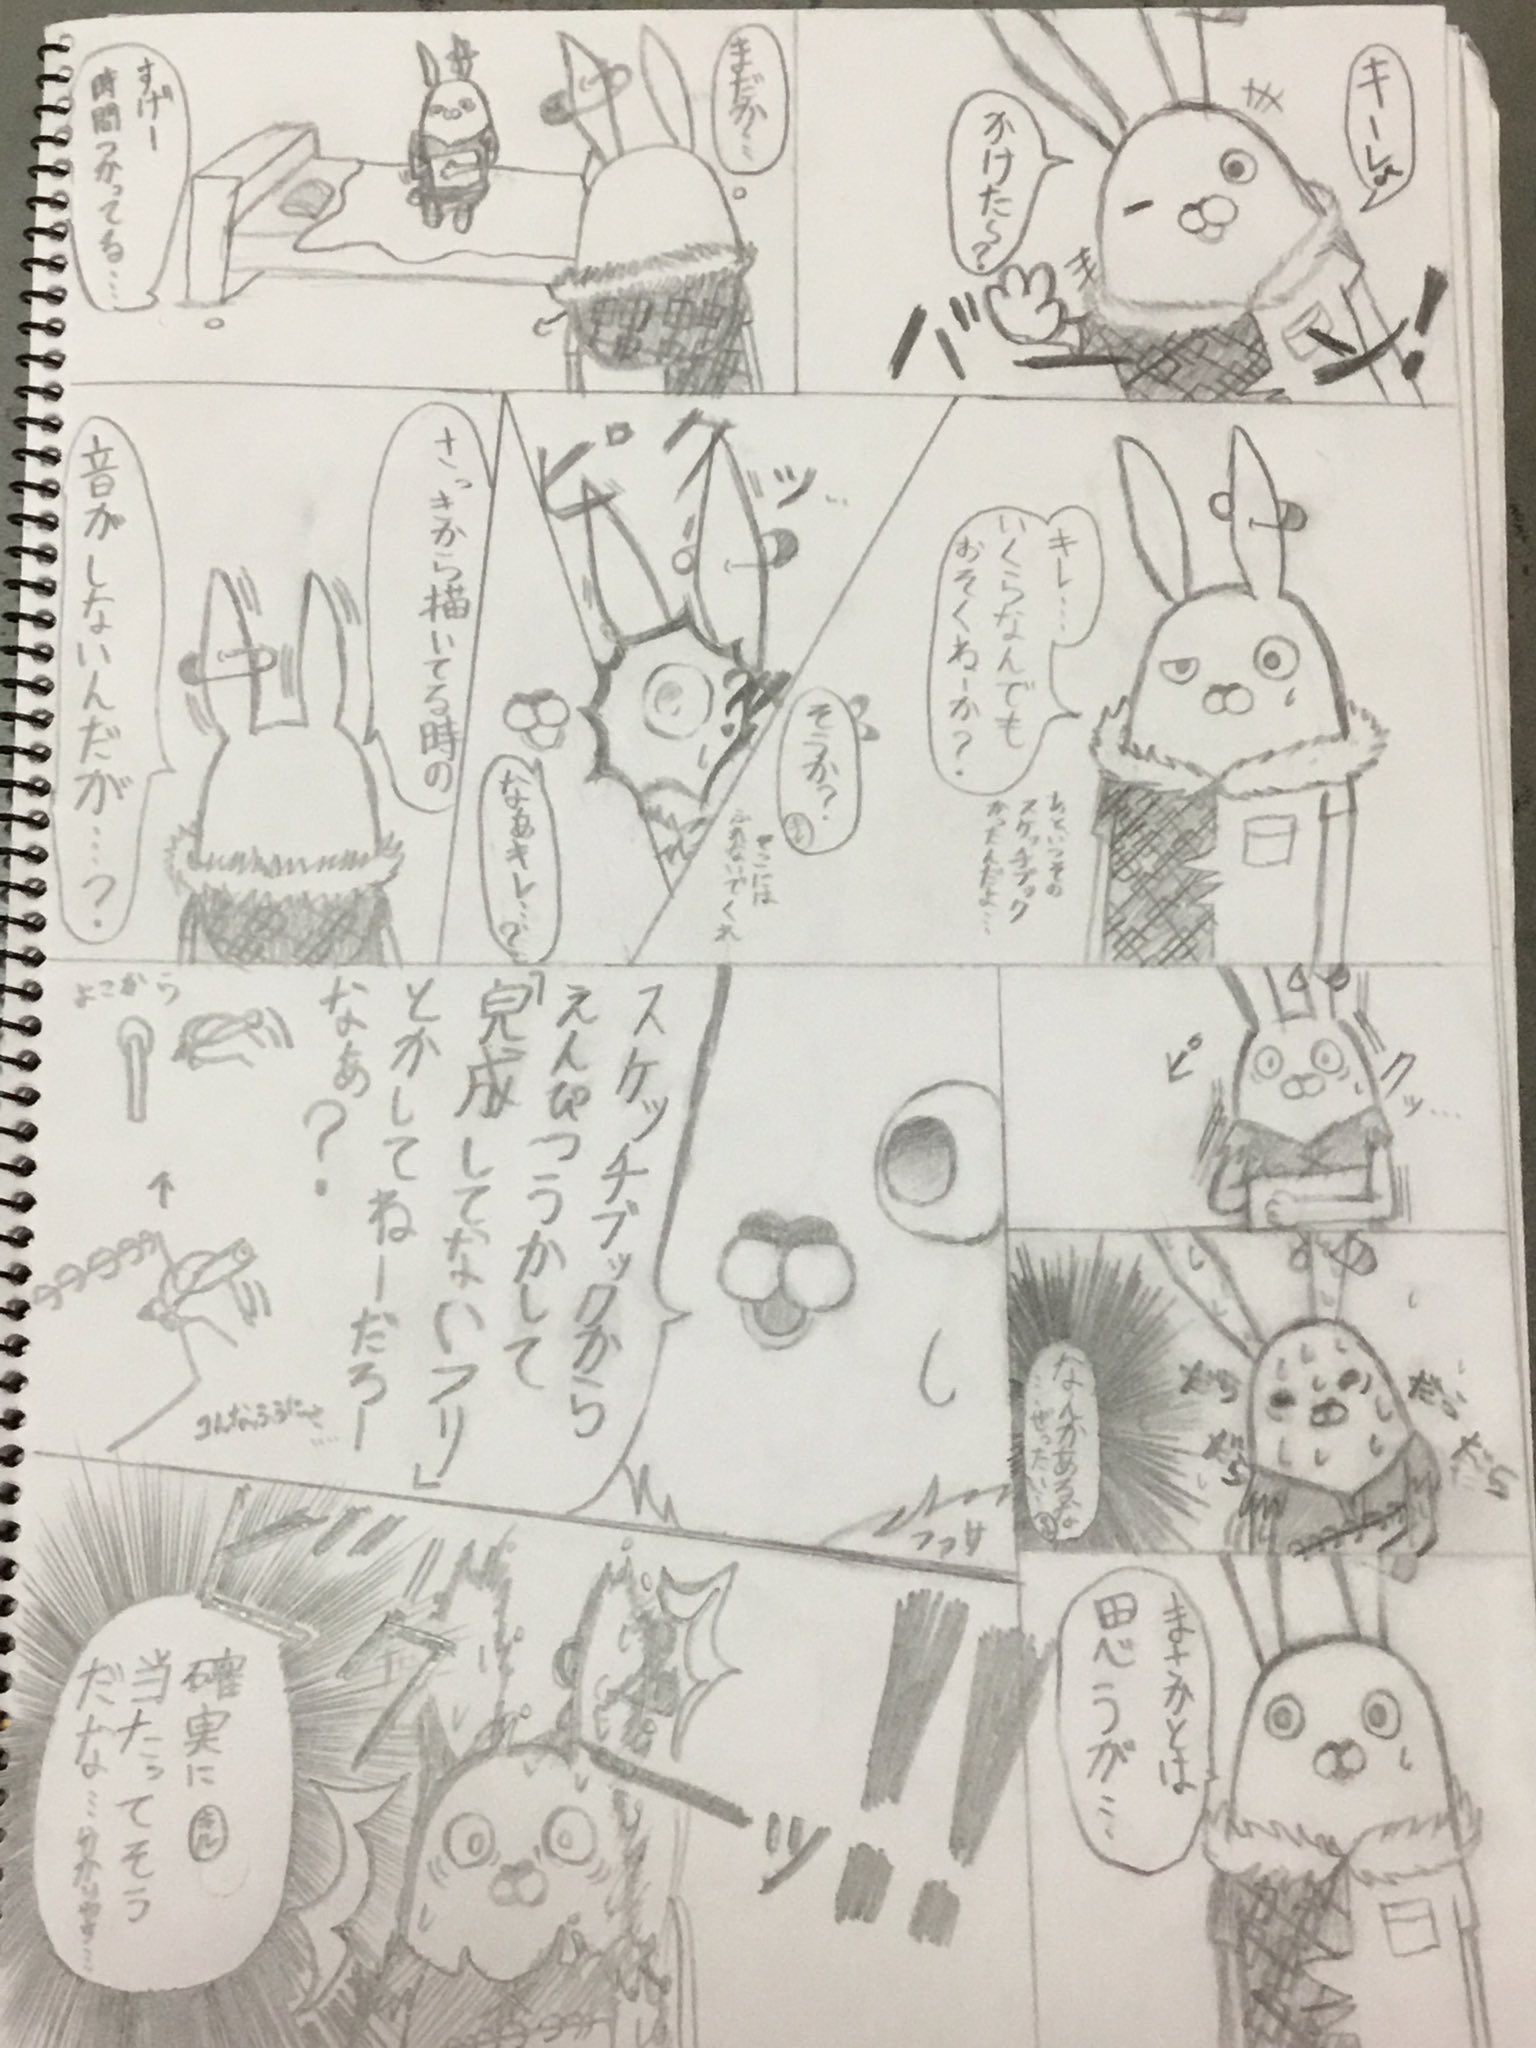 キーレ
かけた〜?
バーン!
まだか…
すげー
時間つかってる…
キレ…
いくらなんでも
おそくねーか?
あといつその
スケッチブック
かったんだよ…
そうか?
そこには
ふれないでくれ
ピクッ…
なぁキレ…?
さっきから描いてる時の
音がしないんだが…?
ピクッ…
なんかあるな
…ぜったい…
だら
だら
だら
だら
まさかとは
思うが…
スケッチブックから
えんぴつうかして
「完成してないフリ」
とかしてねーだろー
なぁ?
よこから
こんなふうにさ…
フフサ
ビクッ!!
確実に
当たってそう
だな…